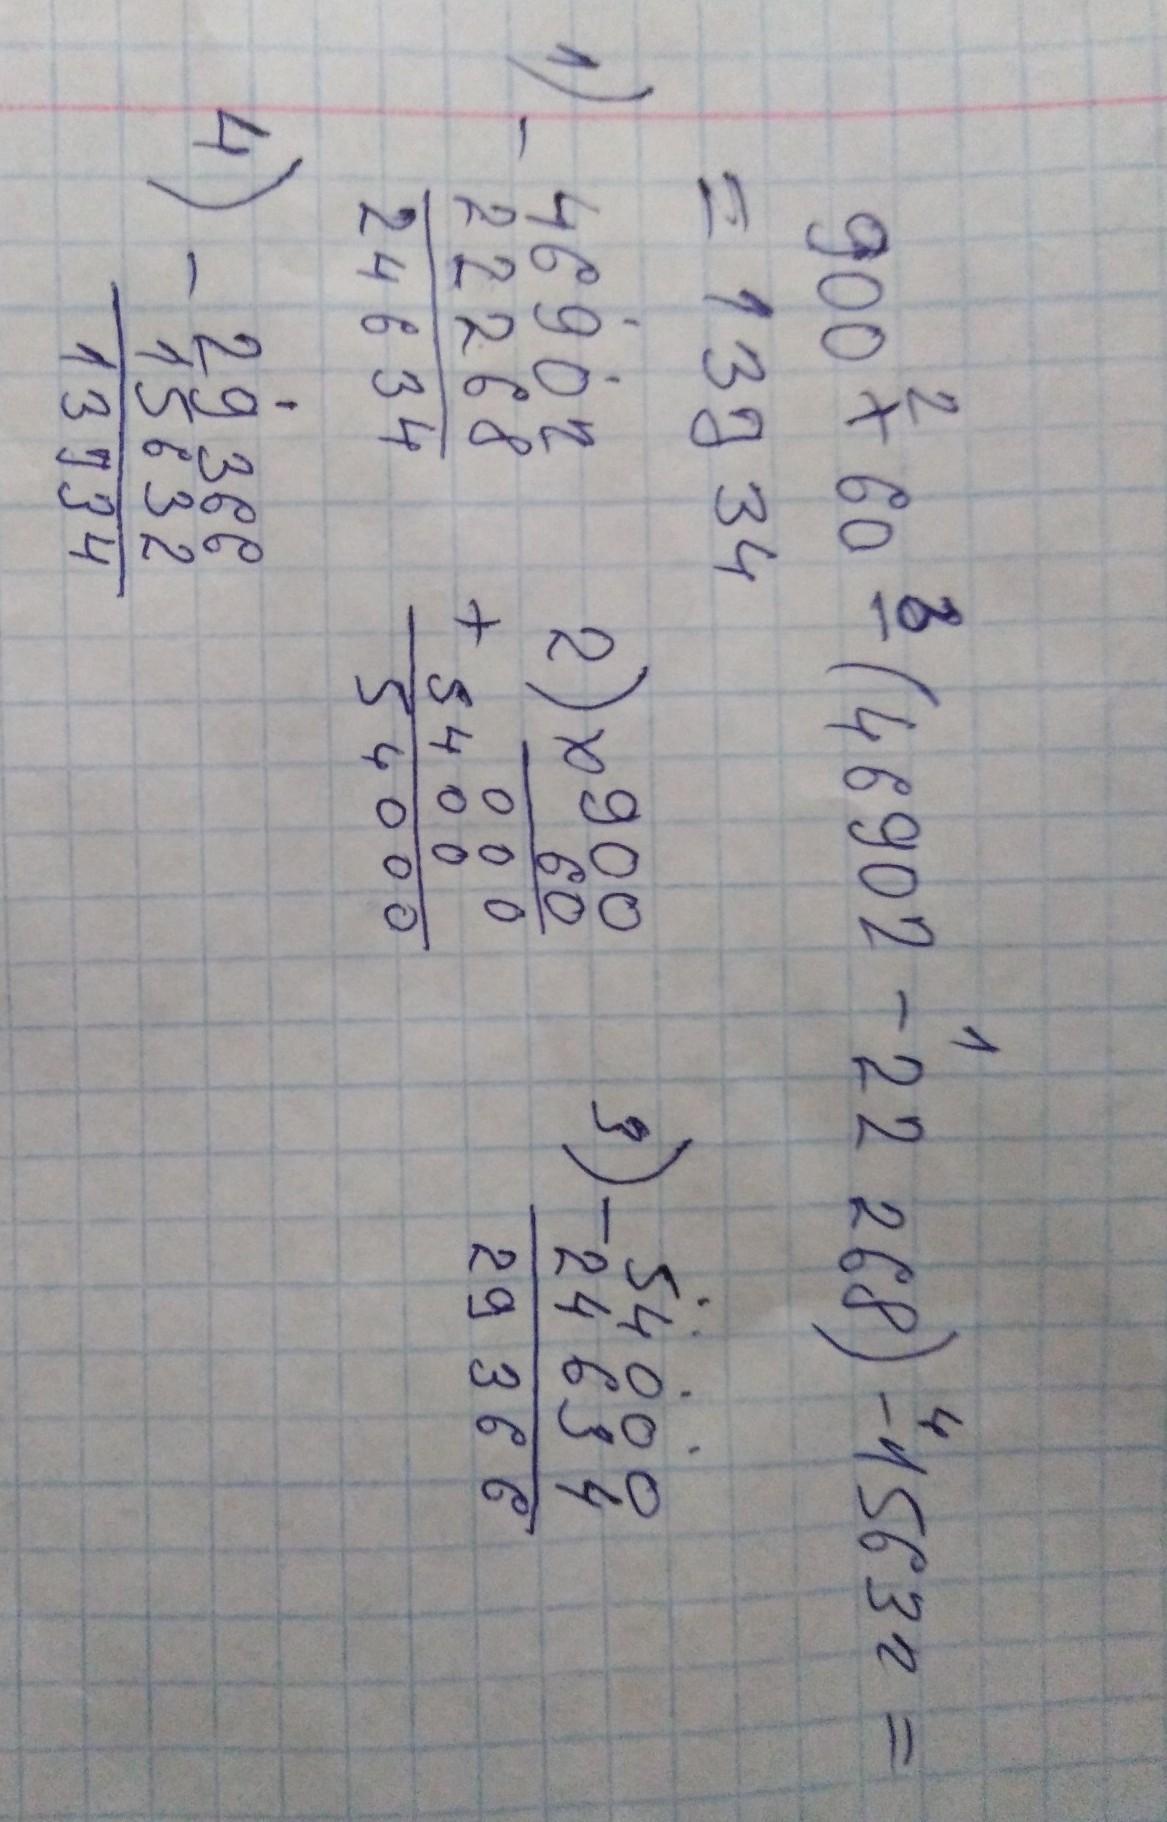 2 3 1 4
900 × 60 - (46902 - 22 268) - 15632 =
= 13734
1) - 46902
22268
24634
2) × 900
60
000
+ 5400
54000
3) - 54000
24634
29366
4) - 29366
15632
13734